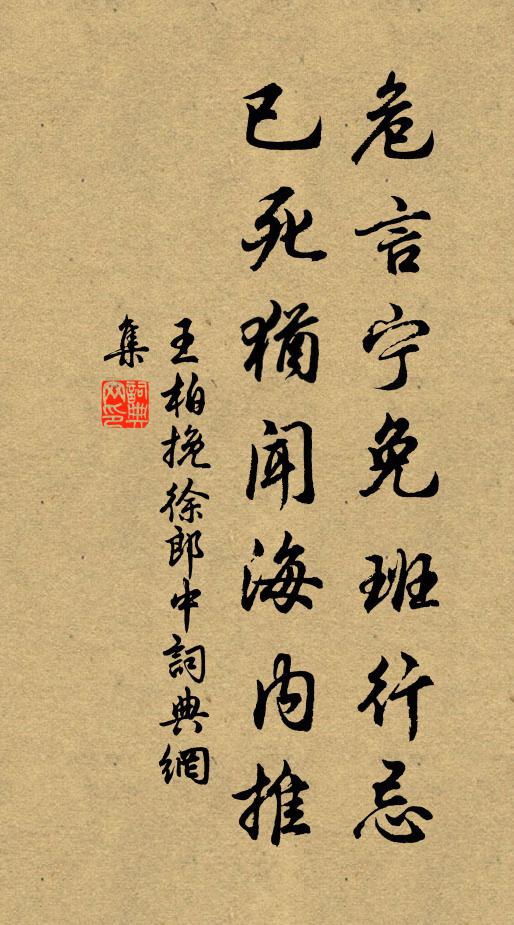 危言宁免班行忌
已死猶闻海内推
王柏挽徐郎中詞典網
集
詞典網印